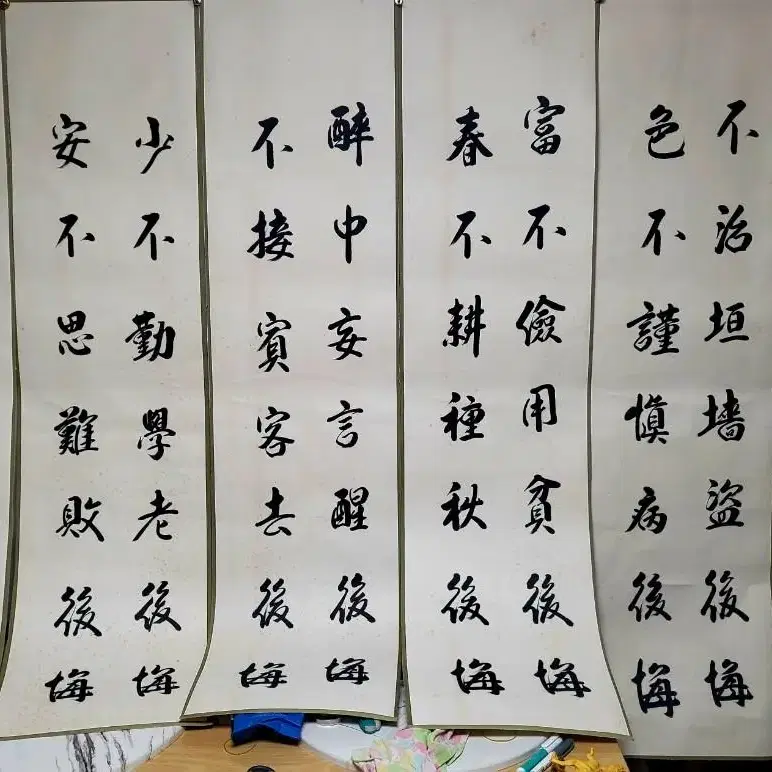 不治垣墙盜後悔
色不謹慎病後悔
富不儉用貧後悔
春不耕種秋後悔
醉中妄言醒後悔
不接賓客去後悔
少不勤學老後悔
安不思難敗後悔